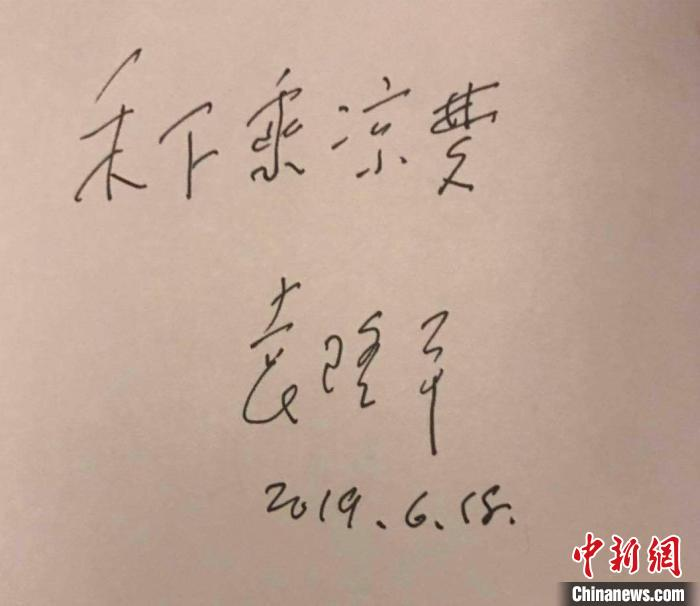 禾下乘凉梦
袁隆平
2019.6.18.
中新網
Chinanews.com